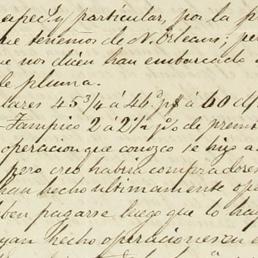 apec. y particular, por la p
que tenemos de N. Orleans; per
ue nos dicen han embarcado a
de pluma.
lares 45 3/4 á 46 d. p$ á 60 d/
Tampico 2 á 2 1/2 p%o de premi
operacion que conozco se hizo a
pero creo habia compradores
han hecho ultimamente ope
ben pagarse, luego que lo ha
yan hecho operaciones en e